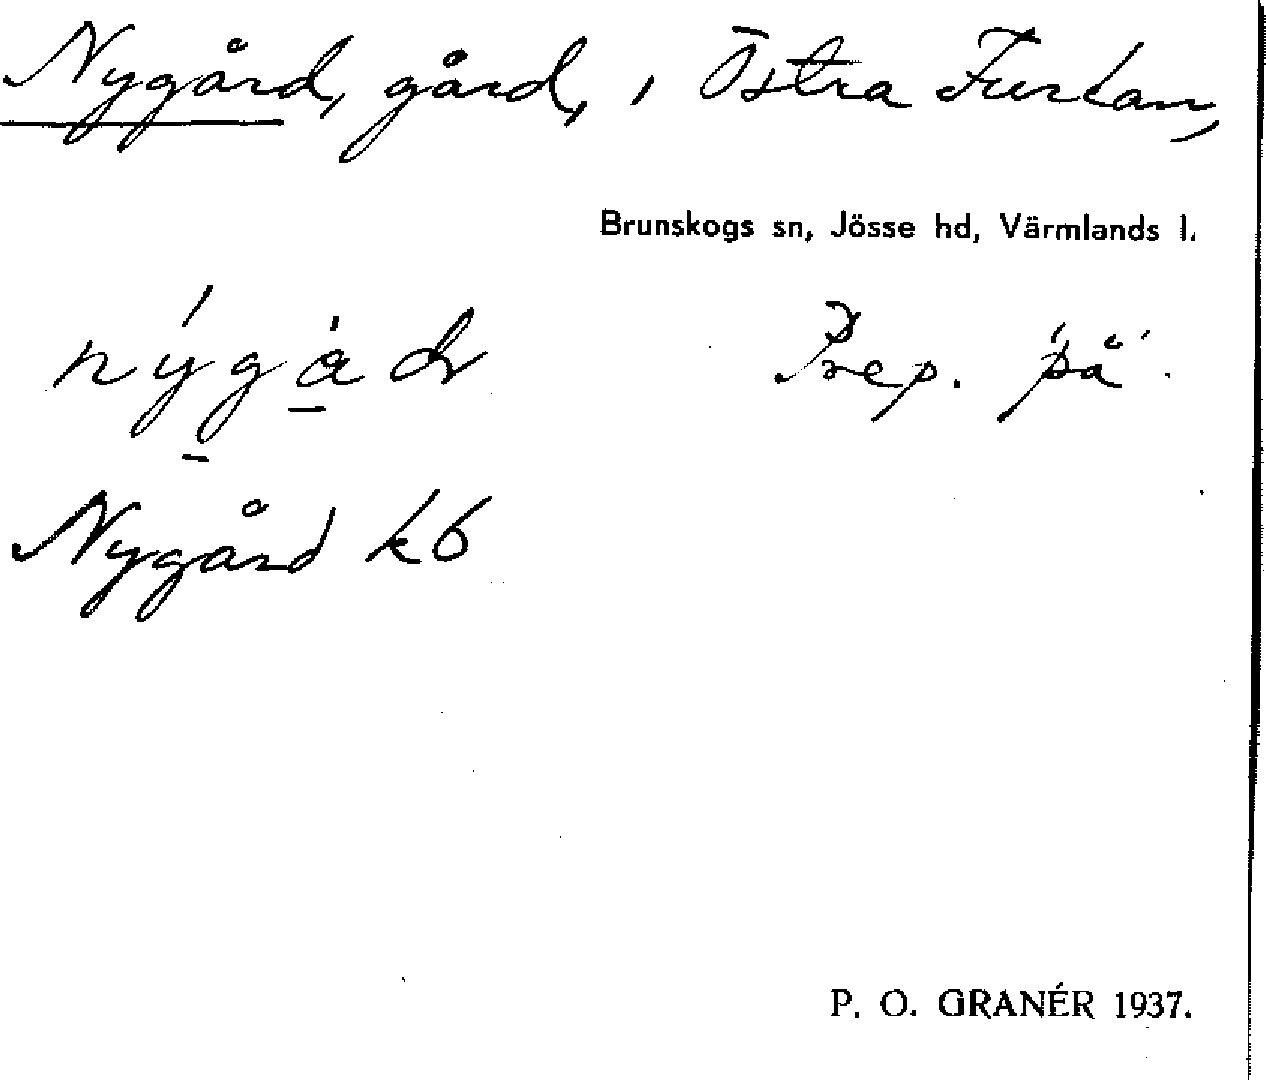 Nygård, gård, i Östra Furtan,
Brunskogs sn, Jösse hd, Värmlands l.
Prep. på.
Nygård kb
P. O. GRANÉR 1937.